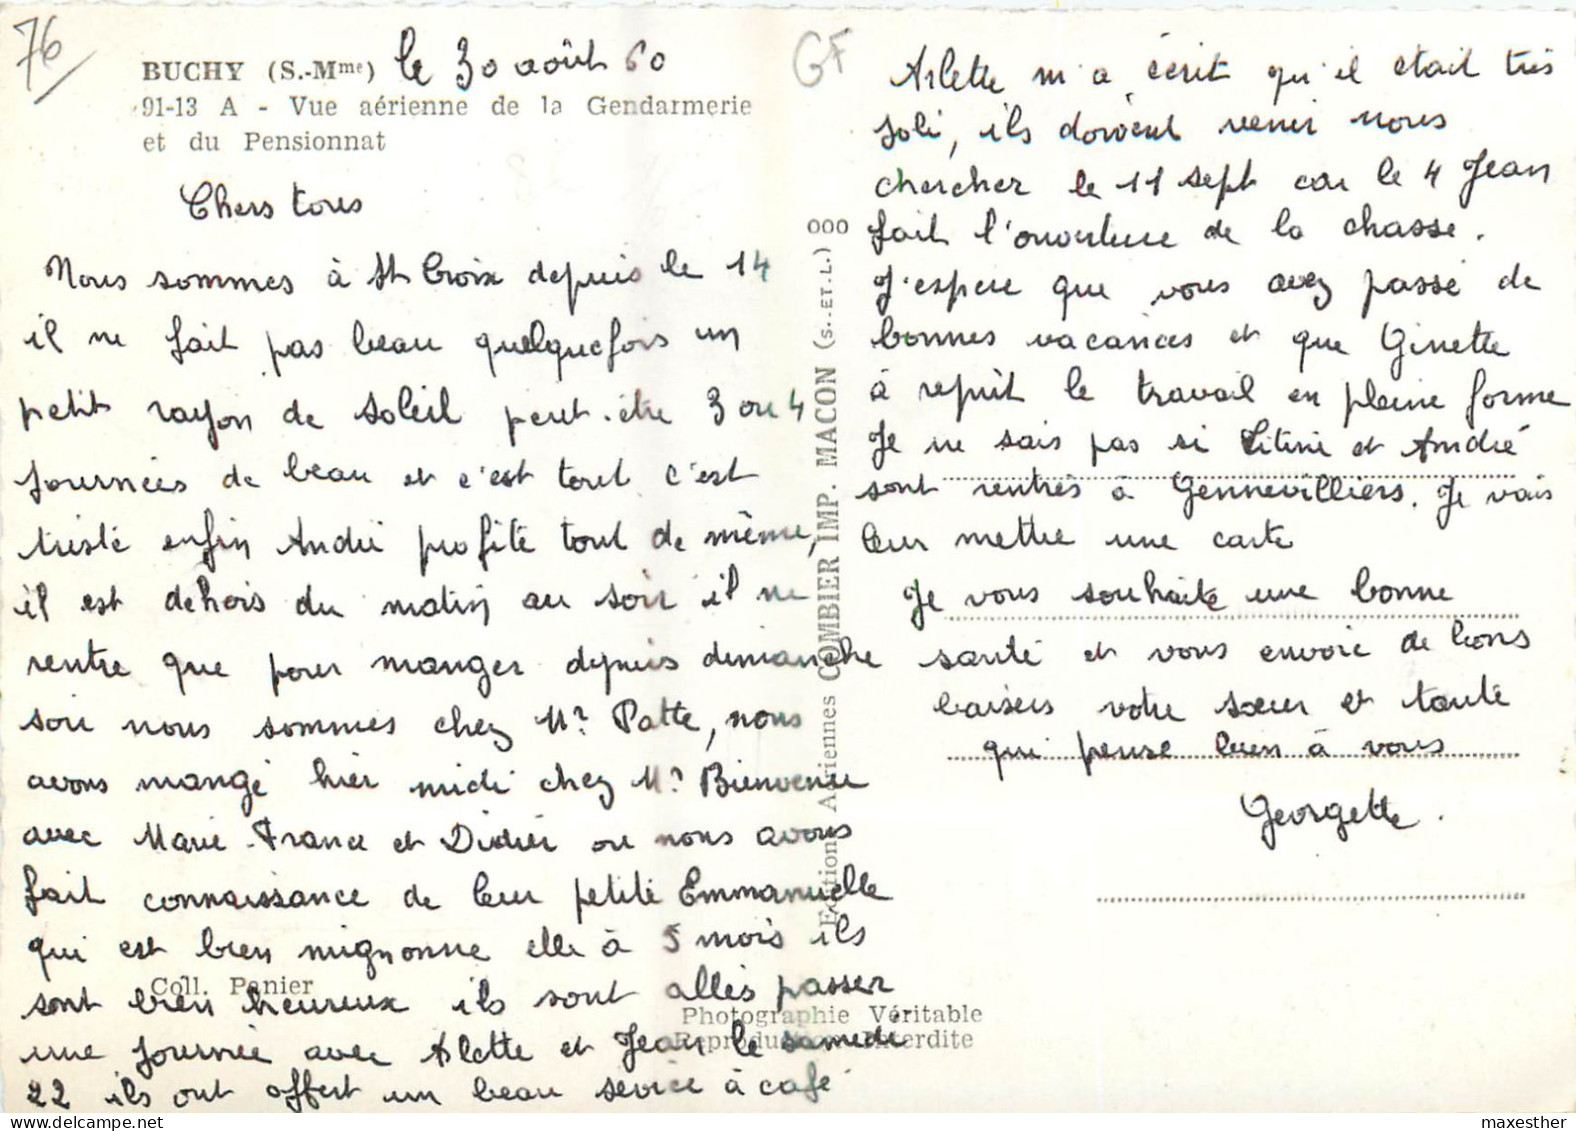 76
BUCHY (S.-Mme) le 30 août 60
91-13 A - Vue aérienne de la Gendarmerie
et du Pensionnat
Chers tous
Nous sommes à St Croix depuis le 14
il ne fait pas beau quelquefois un
petit rayon de soleil peut-être 3 ou 4
journées de beau et c'est tout c'est
triste enfin André profite tout de même,
il est dehors du matin au soir il ne
rentre que pour manger depuis dimanche
soir nous sommes chez Mr Patte, nous
avons mangé hier midi chez Mr Bienvenu
avec Marie-France et Didier ou nous avons
fait connaissance de leur petite Emmanuelle
qui est bien mignonne elle à 5 mois ils
sont bien heureux ils sont allés passer
une journée avec Arlette et Jean le samedi
22 ils ont offert un beau sevice à café
Coll. Panier
Photographie Véritable
Reproduction Interdite
Editions Aériennes COMBIER IMP. MACON (S.-ET-L.) 000
GF
Arlette m'a écrit qu'il était très
joli, ils doivent venir nous
chercher le 11 sept car le 4 Jean
fait l'ouverture de la chasse.
J'espère que vous avez passé de
bonnes vacances et que Ginette
à reprit le travail en pleine forme
Je ne sais pas si Titine et André
sont rentrés à Gennevilliers. Je vais
leur mettre une carte
Je vous souhaite une bonne
santé et vous envoie de bons
baisers votre sœur et tante
qui pense bien à vous
Georgette.
maxesther